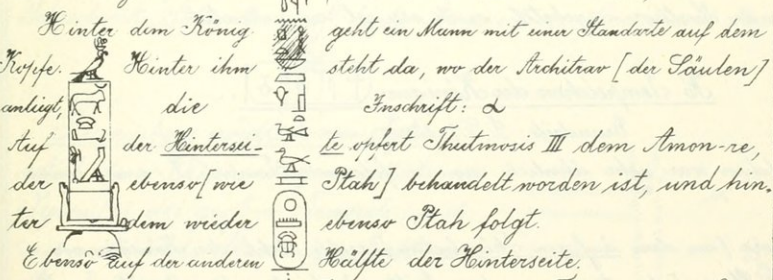 Hinter dem König geht ein Mann mit einer Standarte auf dem
Kopfe. Hinter ihm steht da, wo der Architrav [der Säulen]
anliegt, die Inschrift: α
Auf der Hintersei- te opfert Thutmosis III dem Amon-re,
der ebenso [wie Ptah] behandelt worden ist, und hin-
ter dem wieder ebenso Ptah folgt.
Ebenso auf der anderen Hälfte der Hinterseite.